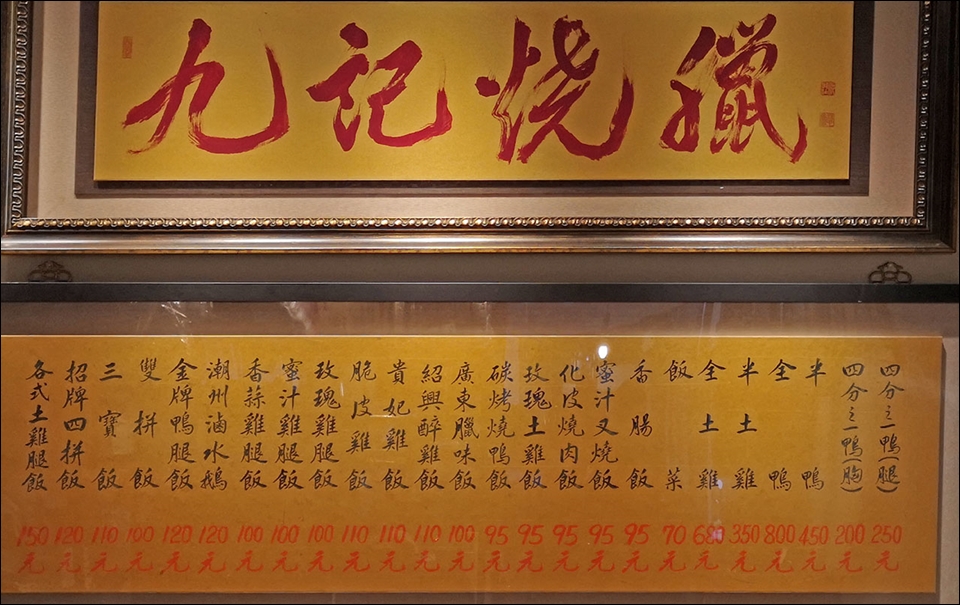 九记烧獵
四分之一鴨(腿) 250元
四分之一鴨(胸) 200元
半鴨 450元
全鴨 800元
半土雞 350元
全土雞 680元
飯菜 70元
香腸飯 95元
蜜汁叉燒飯 95元
化皮燒肉飯 95元
玫瑰土雞飯 95元
碳烤燒鴨飯 95元
廣東臘味飯 100元
紹興醉雞飯 110元
貴妃雞飯 110元
脆皮雞飯 110元
玫瑰雞腿飯 100元
蜜汁雞腿飯 100元
香蒜雞腿飯 100元
潮州滷水鵝 120元
金牌鴨腿飯 120元
雙拼飯 100元
三寶飯 110元
招牌四拼飯 120元
各式土雞腿飯 150元